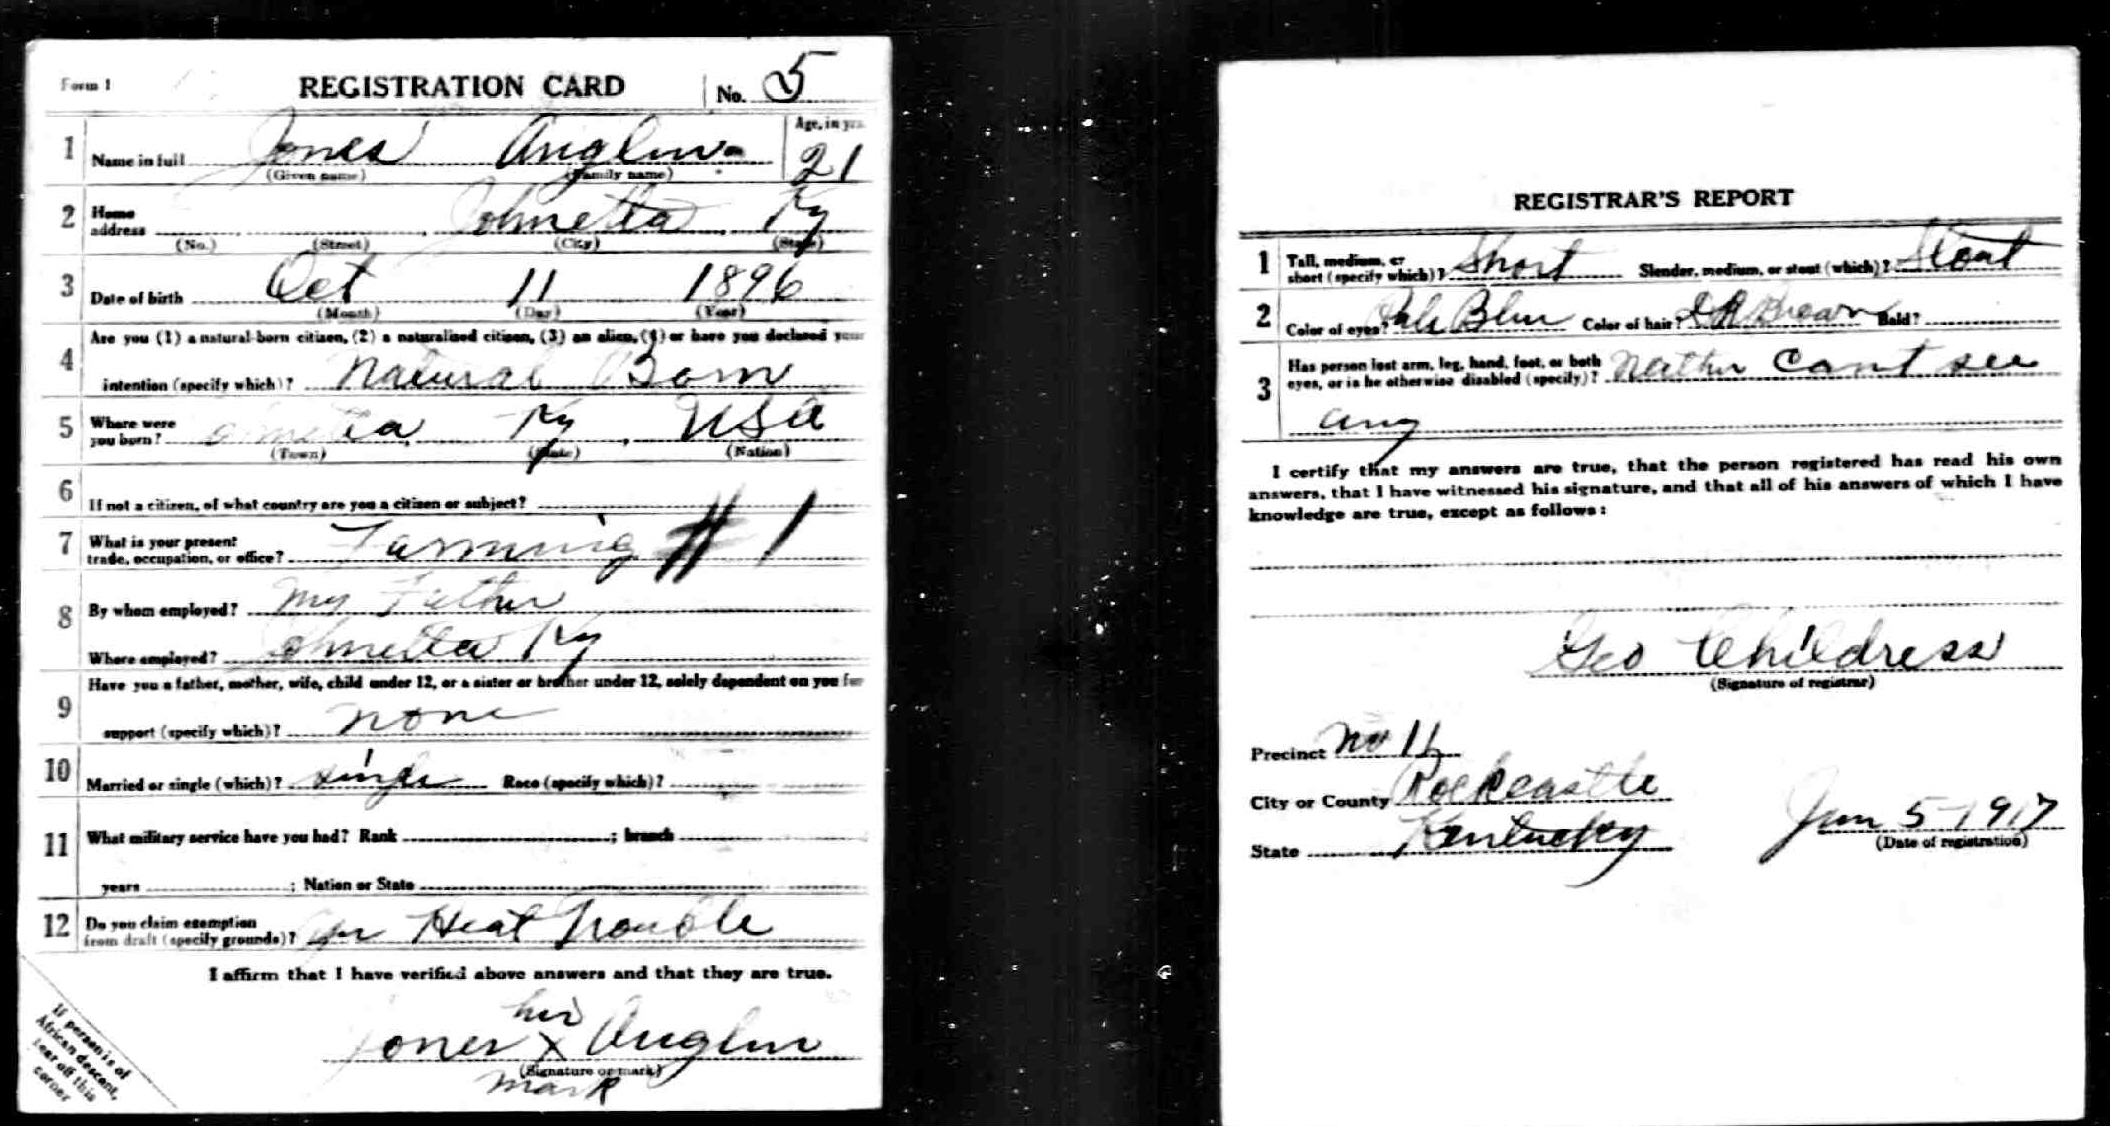 Form 1
REGISTRATION CARD No. 5
1 Name in full Jones Anglin Age, in yrs. 21
(Given name) (Family name)
2 Home address Johnetta Ky
(No.) (Street) (City) (State)
3 Date of birth Oct 11 1896
(Month) (Day) (Year)
4 Are you (1) a natural-born citizen, (2) a naturalized citizen, (3) an alien, (4) or have you declared your
intention (specify which)? Natural Born
5 Where were you born? Ky USA
(Town) (State) (Nation)
6 If not a citizen, of what country are you a citizen or subject?
7 What is your present trade, occupation, or office? Farming # 1
8 By whom employed? My Father
Where employed? Johnetta Ky
9 Have you a father, mother, wife, child under 12, or a sister or brother under 12, solely dependent on you for
support (specify which)? none
10 Married or single (which)? single Race (specify which)?
11 What military service have you had? Rank ; branch
years ; Nation or State
12 Do you claim exemption from draft (specify grounds)? Heat Trouble
I affirm that I have verified above answers and that they are true.
his
Jones X Anglin
(Signature or mark)
mark
If person is of
African descent,
tear off this
corner
REGISTRAR'S REPORT
1 Tall, medium, or short (specify which)? Short Slender, medium, or stout (which)? Stout
2 Color of eyes? Pale Blue Color of hair? Brown Bald?
3 Has person lost arm, leg, hand, foot, or both
eyes, or is he otherwise disabled (specify)? Neither Cant see
any
I certify that my answers are true, that the person registered has read his own
answers, that I have witnessed his signature, and that all of his answers of which I have
knowledge are true, except as follows:
Geo Childress
(Signature of registrar)
Precinct No 11
City or County Rockcastle
State Kentucky
Jun 5-1917
(Date of registration)